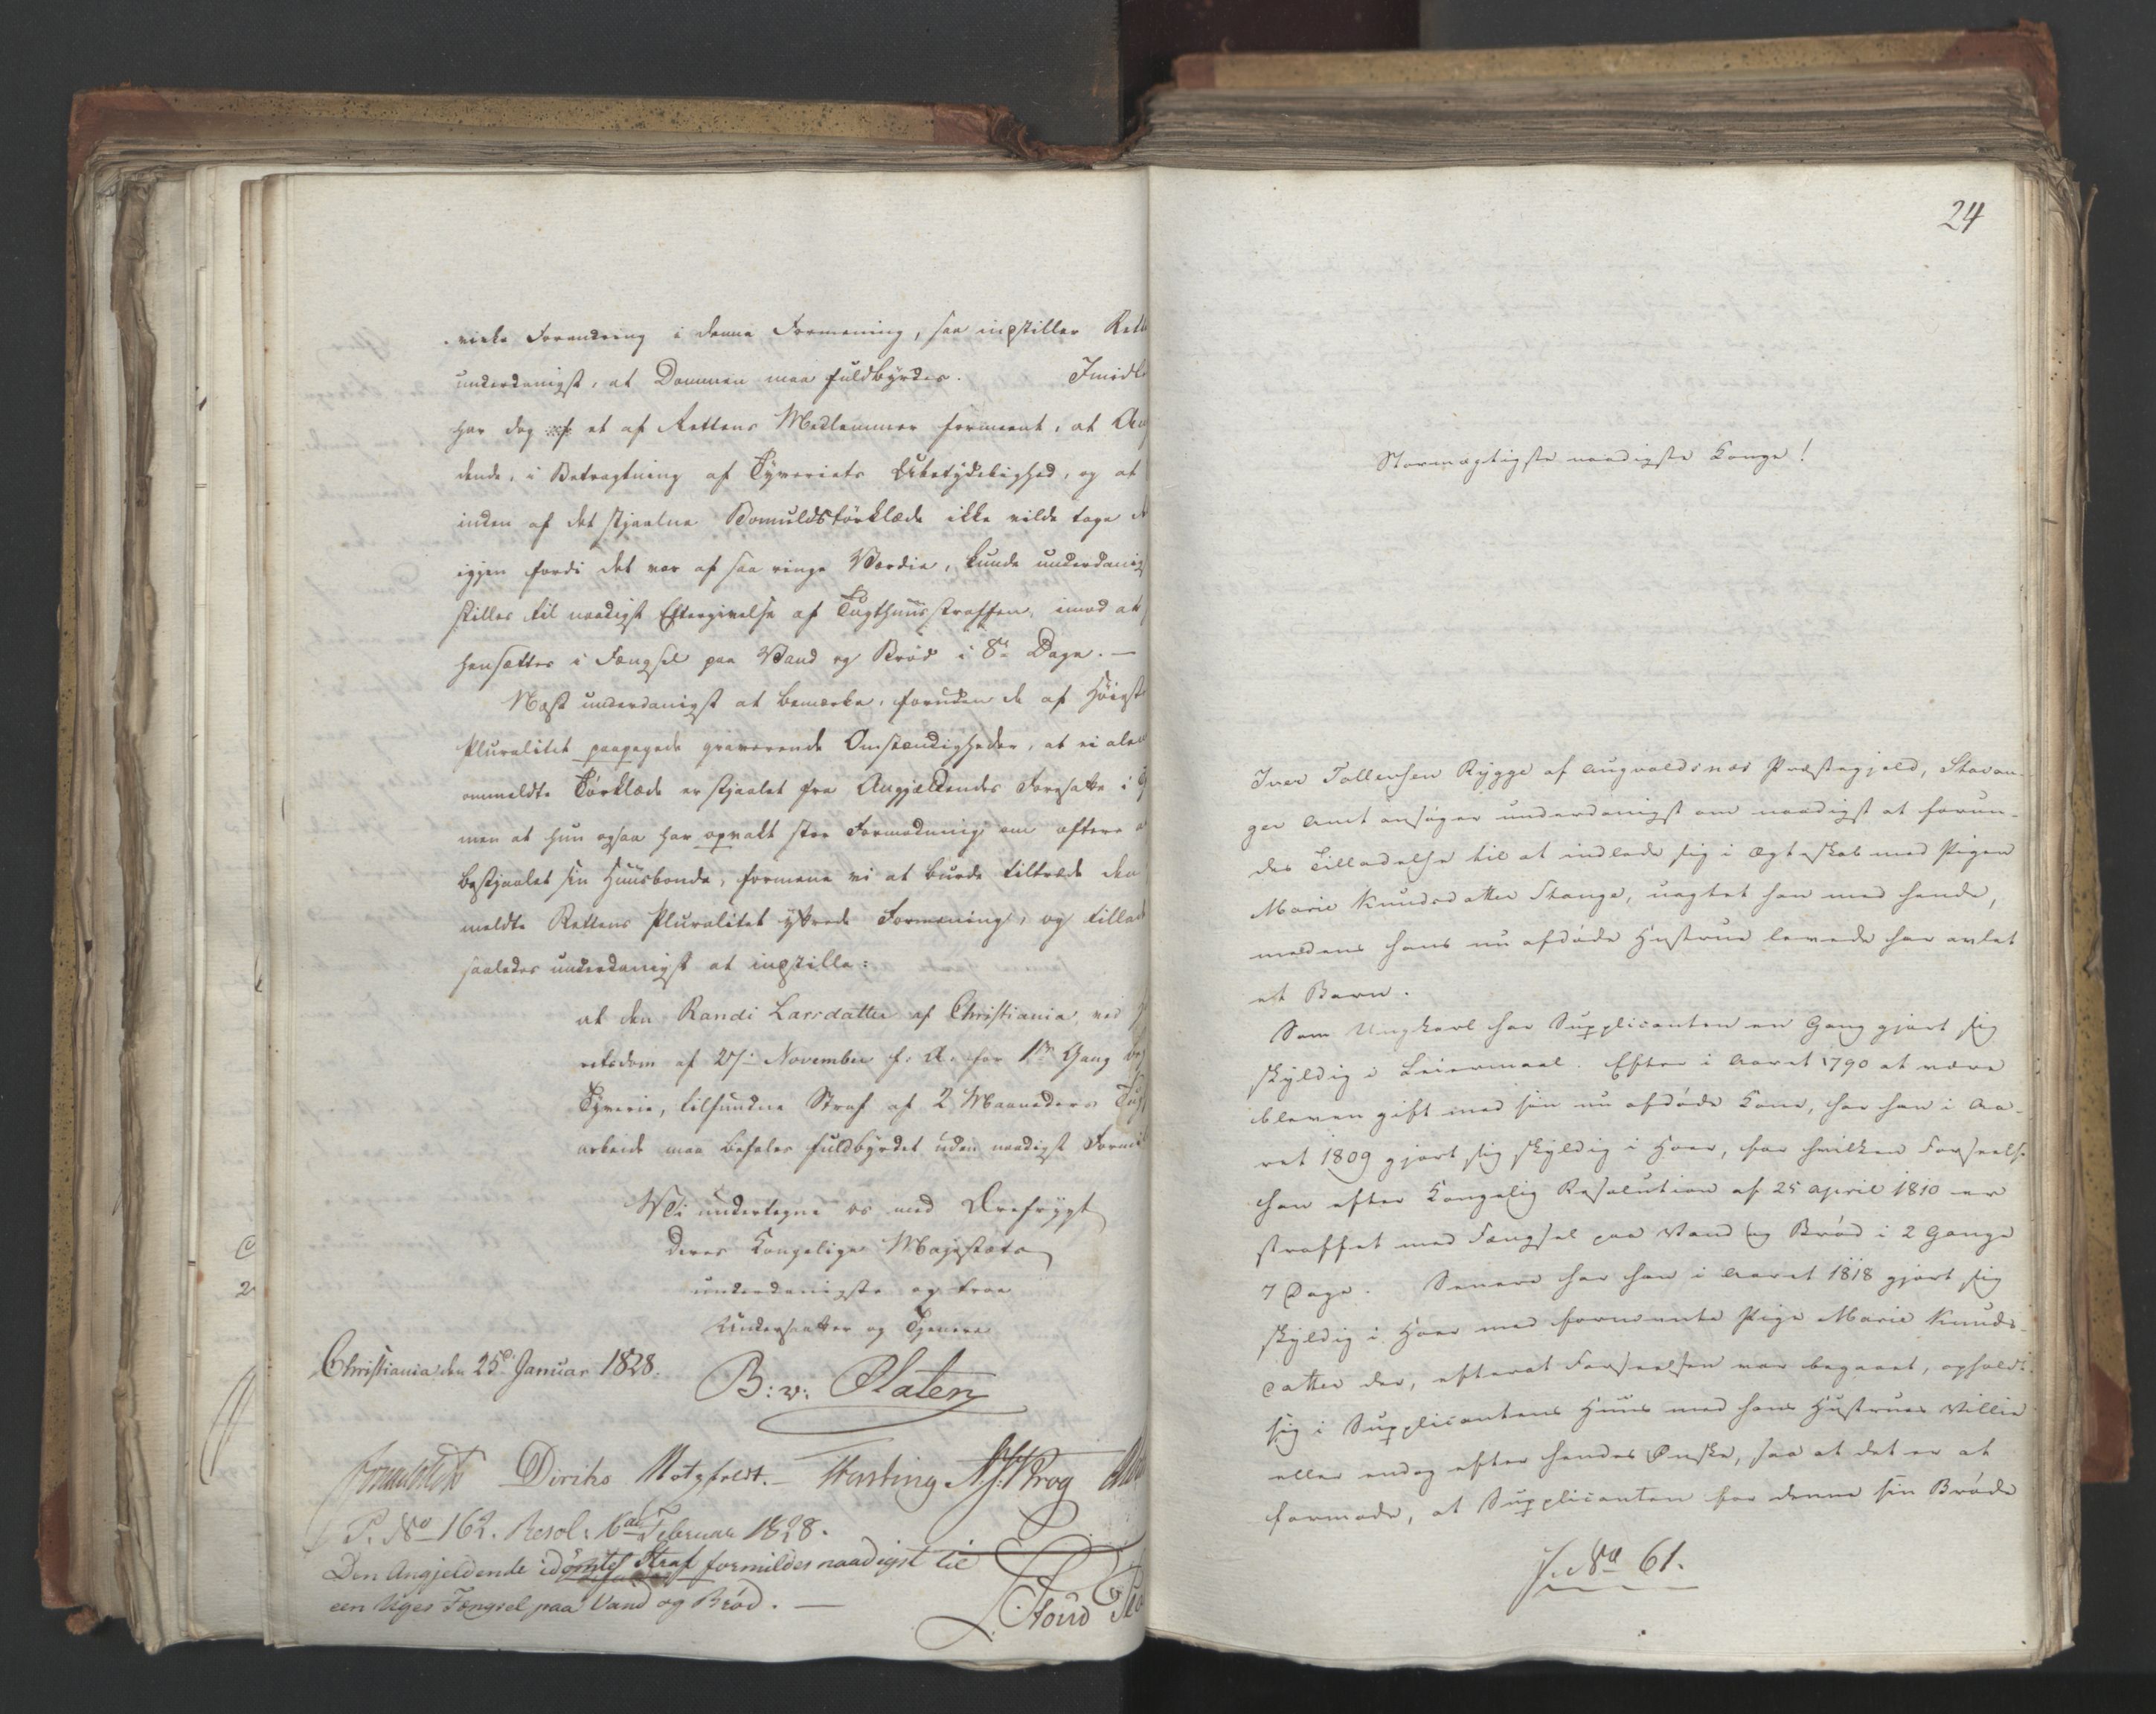 virke Forandring i denne Formening, saa indstiller Rett
underdanigst, at Dommen maa fuldbyrdes. Imidle
har dog et af Rettens Medlemmer formeent, at Ang
dende, i Betragtning af Tyveriets Ubetydelighed, og at
inden af det stjaalne Bomuldstörklæde ikke vilde tage d
igjen fordi det var af saa ringe Værdie, kunde underdanig
stilles til naadigst Eftergivelse af Tugthuusstraffen, imod at
hensættes i Fængsel paa Vand og Bröd i 8te Dage. —
Næst underdanigst at bemærke, foruden de af Höieste
Pluralitet paapegede graverende Omstændigheder, at ei alen
ommeldte Törklæde er stjaalet fra Angjældendes Foresatte i
men at hun ogsaa har opvakt stor Formodning om oftere
bestjaalet sin Huusbonde, formene vi at burde tiltræde den
meldte Rettens Pluralitet yttrede Formening, og tillad
saaledes underdanigst at indstille:
at den Randi Larsdatter af Christiania, ved
retsdom af 27de November f. A. for 1ste Gang be
Tyverie, tilfundne Straf af 2 Maaneders Tugt
arbeide maa befales fuldbyrdet uden naadigst Formil
Vi undertegne os med Ærefrygt
Deres Kongelige Majestæts
underdanigste og troe
Undersaatter og Tjenere
Christiania den 25de Januar 1828.
B: v: Platen
Diriks Motzfeldt. Fasting Krog
P. No 162. Resol. 16de Februar 1828.
Den Angjeldende idömte Straf formildes naadigst til
een Uges Fængsel paa Vand og Bröd. —
24
Stormægtigste naadigste Konge!
Iver Tollevsen Rygge af Augvaldsnæs Præstegjeld, Stavan-
ger Amt ansöger underdanigst om naadigst at forun-
des Tilladelse til at indlade sig i Ægteskab med Pigen
Marie Knudsdatter Stange, uagtet han med hende,
medens hans nu afdöde Hustrue levede har avlet
et Barn.
Som Ungkarl har Supplicanten en Gang gjort sig
skyldig i Leiermaal. Efter i Aaret 1790 at være
bleven gift med sin nu afdöde Kone, har han i Aa-
ret 1809 gjort sig skyldig i Hoer, for hvilken Forseelse
han efter Kongelig Resolution af 25 April 1810 er
straffet med Fængsel paa Vand og Bröd i 2 Gange
7 Dage. Senere har han i Aaret 1818 gjort sig
skyldig i Hoer med fornævnte Pige Marie Knuds-
datter der, efterat Forseelsen var begaaet, opholdt
sig i Supplicantens Huus med hans Hustrues Villie
eller endog efter hendes Önske, saa at det er at
formode, at Supplicanten for denne sin Bröde
J. No 61.